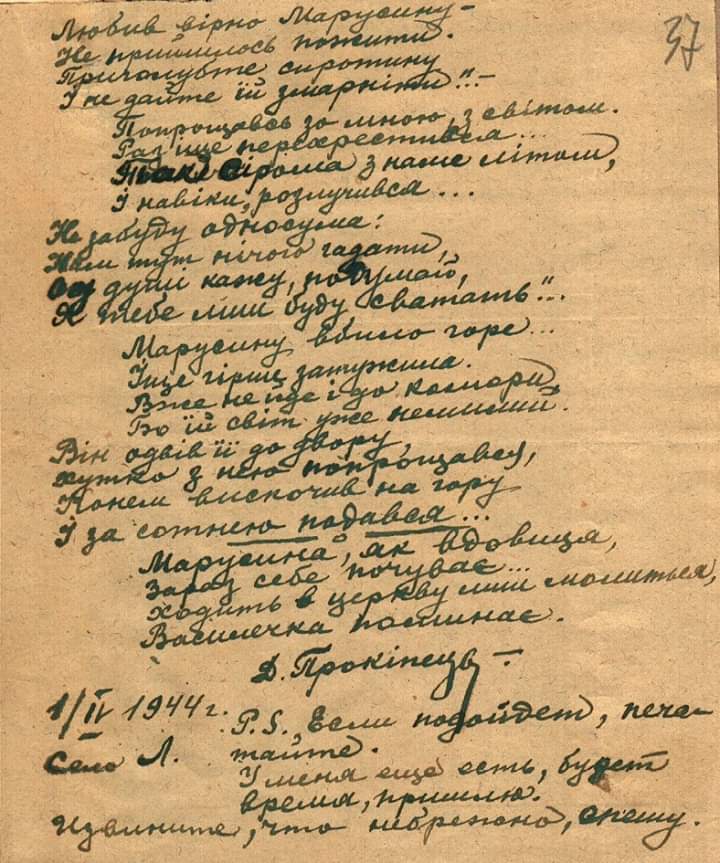 37
Любив вірно Марусину –
Не прийшлось пожити.
Приголубте сиротину
І не дайте їй змарніти"... –
Попрощавсь зо мною, з світом.
Раз іще перехрестився...
сірома з наше літом,
І навіки, розлучився...
Не забуду односума:
Нам тут нічого гадати,
Од душі кажу, подумай,
Я тебе лиш буду сватать"...
Марусину вбило горе...
Іще гірш затужила.
Вже не йде і до комори,
Бо їй світ уже немилий.
Він одвів її до двору,
хутко з нею попрощався,
Конем вискочив на гору
І за сотнею подався...
Марусина, як вдовиця,
Зараз себе почуває...
Ходить в церкву лиш молиться,
Василечка поминає.
Д. Прокіпець –
1/IV 1944 г.
P.S., Если подойдет, печа-
Село Л. тайте.
У меня еще есть, будет
время, пришлю.
Извините, что небрежно, спешу.